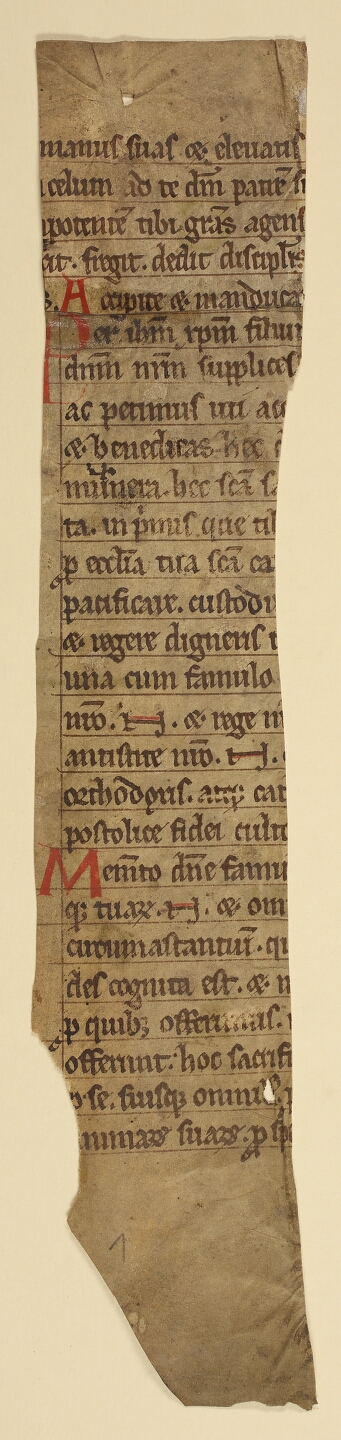 manus suas & eleuatis
celum ad te dm̄ patrē
ipotentē tibi gr̄as agens
fregit. dedit discipl̄is
Accipite & manduca
Per ihm̄ xpm̄ filiū
dnm̄ nrm̄ supplices
ac petimus uti acc
& benedicas hec
munera. hec sc̄a sa
ta. in p̄mis que tib
p ecclīa tua sc̄a ca
pacificare. custodi
& regere digneris
una cum famulo
nr̄o. N. & rege n
antistite nr̄o. N.
orthodoxis. atq; cat
postolice fidei culto
Mem̄to dn̄e famu
q; tuaꝝ. N. & om
circumastantiū. qu
des cognita est. & n
p quib; offerimus.
offerunt. hoc sacrifi
p se. suisq; omnib;
nimaꝝ suaꝝ. p sp
1